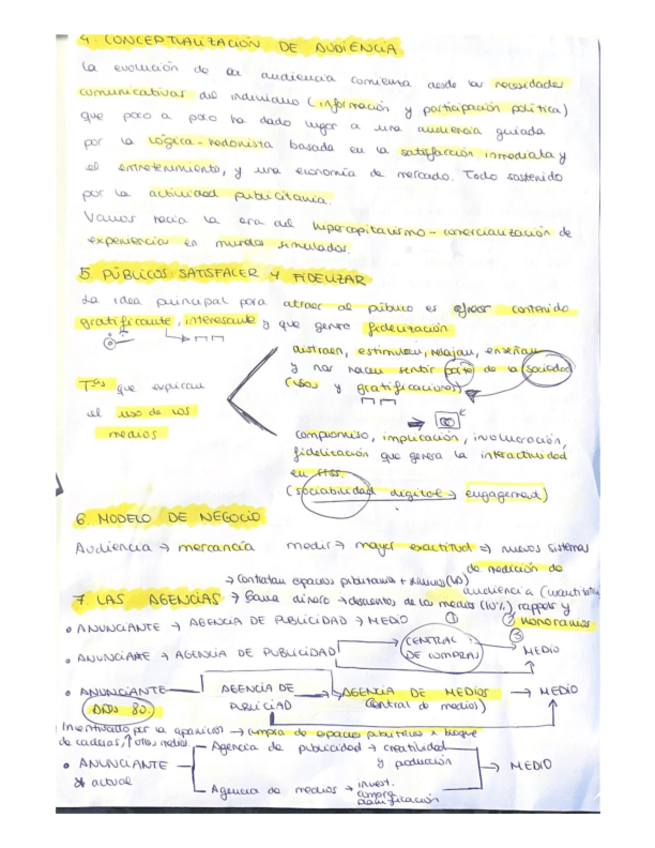 4. CONCEPTUALIZACIÓN DE AUDIENCIA
La evolución de la audiencia comienza desde las necesidades
comunicativas del individuo (información y participación política)
que poco a poco ha dado lugar a una audiencia guiada
por la lógica-hedonista basada en la satisfacción inmediata y
el entretenimiento, y una economía de mercado. Todo sostenido
por la actividad publicitaria.
Vamos hacia la era del hipercapitalismo - comercialización de
experiencias en mundos simulados.
5. PÚBLICOS: SATISFACER Y FIDELIZAR
La idea principal para atraer al público es ofrecer contenido
gratificante, interesante y que genere fidelización
distraen, estimulan, relajan, enseñan
y nos hacen sentir parte de la sociedad
(usos y gratificaciones)
Tªs que explican
el uso de los
medios
compromiso, implicación, involucración,
fidelización que genera la interactividad
en RRSS.
(sociabilidad digital → engagement)
6. MODELO DE NEGOCIO
Audiencia → mercancía medir → mayor exactitud ⇒ nuevos sistemas
de medición de
audiencia (cuantitativa
→ Contratan espacios publitarios +
7. LAS AGENCIAS → Gana dinero → descuentos de los medios (10%) rappels y
① ② honorarios
③
• ANUNCIANTE → AGENCIA DE PUBLICIDAD → MEDIO
• ANUNCIANTE → AGENCIA DE PUBLICIDAD CENTRAL DE COMPRAS MEDIO
• ANUNCIANTE AGENCIA DE PUBLICIAD AGENCIA DE MEDIOS → MEDIO
AÑOS 80. (central de medios)
Incentivado por la aparición → compra de espacios publiterios x bloque
de cadenas, ↑ otros medios
• ANUNCIANTE Agencia de publicidad → creatividad
y producción → MEDIO
actual
Agencia de medios → invest.
compra
planificación